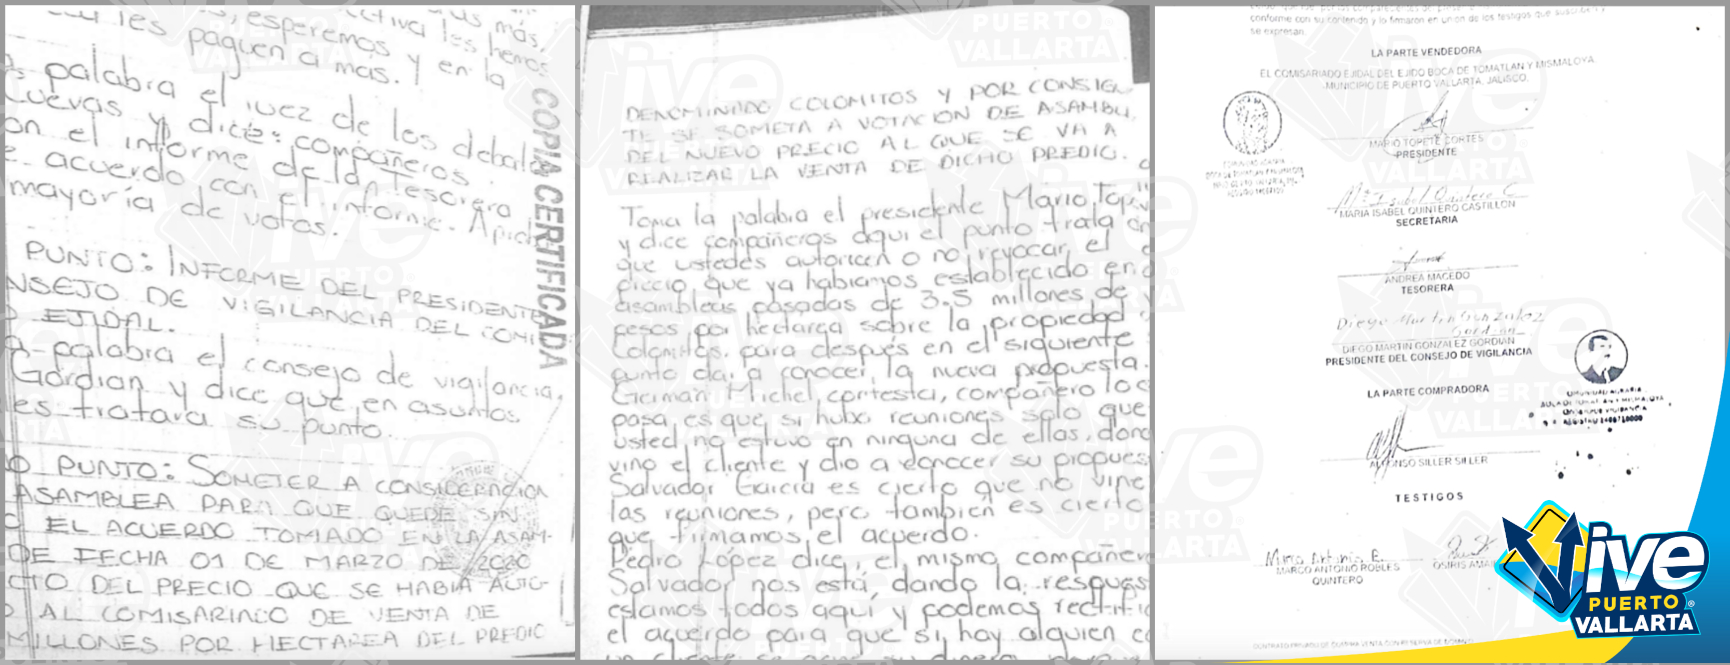 más,
esperemos
les paguen a más. Y en la
palabra el juez de los debates
Cuevas y dice: compañeros
on el informe de la tesorera
acuerdo con el informe.
mayoría de votos.
PUNTO: INFORME DEL PRESIDENTE
NSEJO DE VIGILANCIA DEL COMI
EJIDAL.
palabra el consejo de vigilancia,
Gordian y dice que, en asuntos
es tratara su punto.
PUNTO: SOMETER A CONSIDERACION
ASAMBLEA PARA QUE QUEDE SIN
EL ACUERDO TOMADO EN LA ASAM-
DE FECHA 01 DE MARZO DE 2020
CTO DEL PRECIO QUE SE HABIA AUTO-
AL COMISARIADO DE VENTA DE
MILLONES POR HECTAREA DEL PREDIO
COPIA CERTIFICADA
DENOMINADO COLOMITOS Y POR CONSIGU
TE SE SOMETA A VOTACION DE ASAMBL
DEL NUEVO PRECIO AL QUE SE VA A
REALIZAR LA VENTA DE DICHO PREDIO.
Toma la palabra el presidente Mario Tope
y dice compañeros aqui el punto trata en
que ustedes autoricen o no revocar, el
precio que ya habiamos establecido en
asambleas pasadas de 3.5 millones de
pesos por hectarea sobre la propiedad
Colomitos, para después en el siguiente
punto dar a conocer la nueva propuesta.
German Michel contesta, compañero lo
pasa es que si hubo reuniones solo que
usted no estuvo en ninguna de ellas, dond
vino el cliente y dio a conocer su propues
Salvador Garcia es cierto que no vine
las reuniones, pero tambien es cierto
que firmamos el acuerdo.
Pedro López dice, el mismo compañero
Salvador nos está, dando la respues
estamos todos aqui y podemos rectific
el acuerdo para que si hay alguien
un cliente
conforme con su contenido y lo firmaron en union de los testigos que suscriben y
se expresan.
LA PARTE VENDEDORA
EL COMISARIADO EJIDAL DEL EJIDO BOCA DE TOMATLAN Y MISMALOYA,
MUNICIPIO DE PUERTO VALLARTA, JALISCO.
MARIO TOPETE CORTES
PRESIDENTE
Mª Isabel Quintero C
MARIA ISABEL QUINTERO CASTILLON
SECRETARIA
ANDREA MACEDO
TESORERA
Diego Martin Gonzalez
Gordian
DIEGO MARTIN GONZALEZ GORDIAN
PRESIDENTE DEL CONSEJO DE VIGILANCIA
LA PARTE COMPRADORA
ALFONSO SILLER SILLER
TESTIGOS
MARCO ANTONIO ROBLES
QUINTERO
Vive
PUERTO
VALLARTA